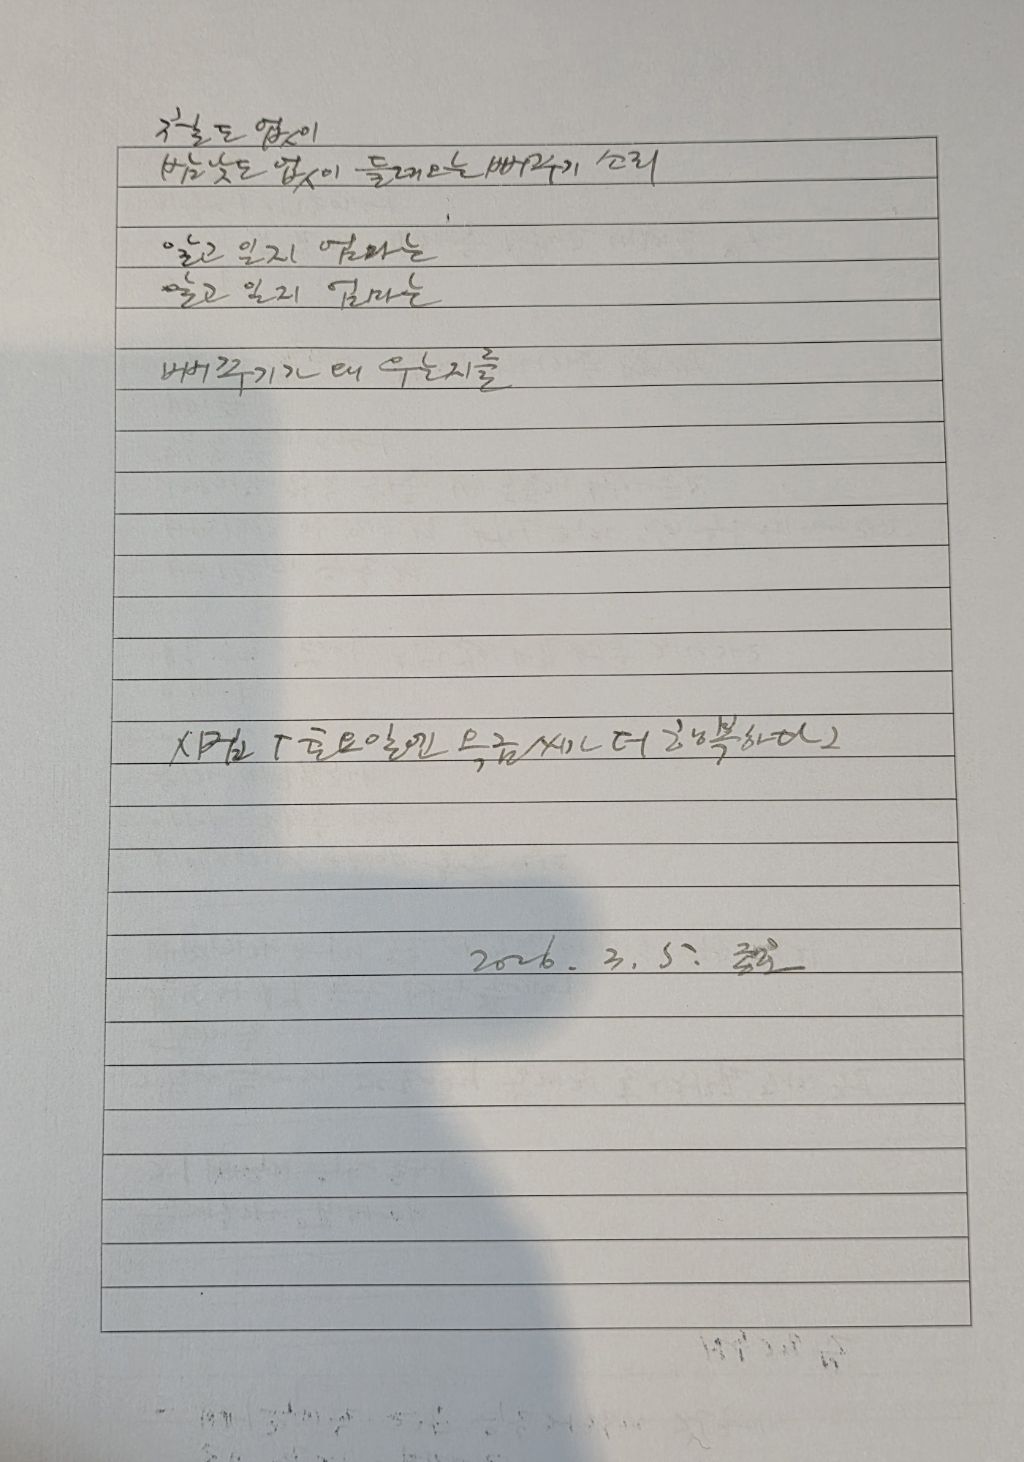 철도 없이
밤낮도 없이 들려오는 뻐꾸기 소리
알고 있지 엄마는
알고 있지 엄마는
뻐꾸기가 왜 우는지를
시집 「토요일엔 씨가 더 행복하다」
2026. 3. 5.